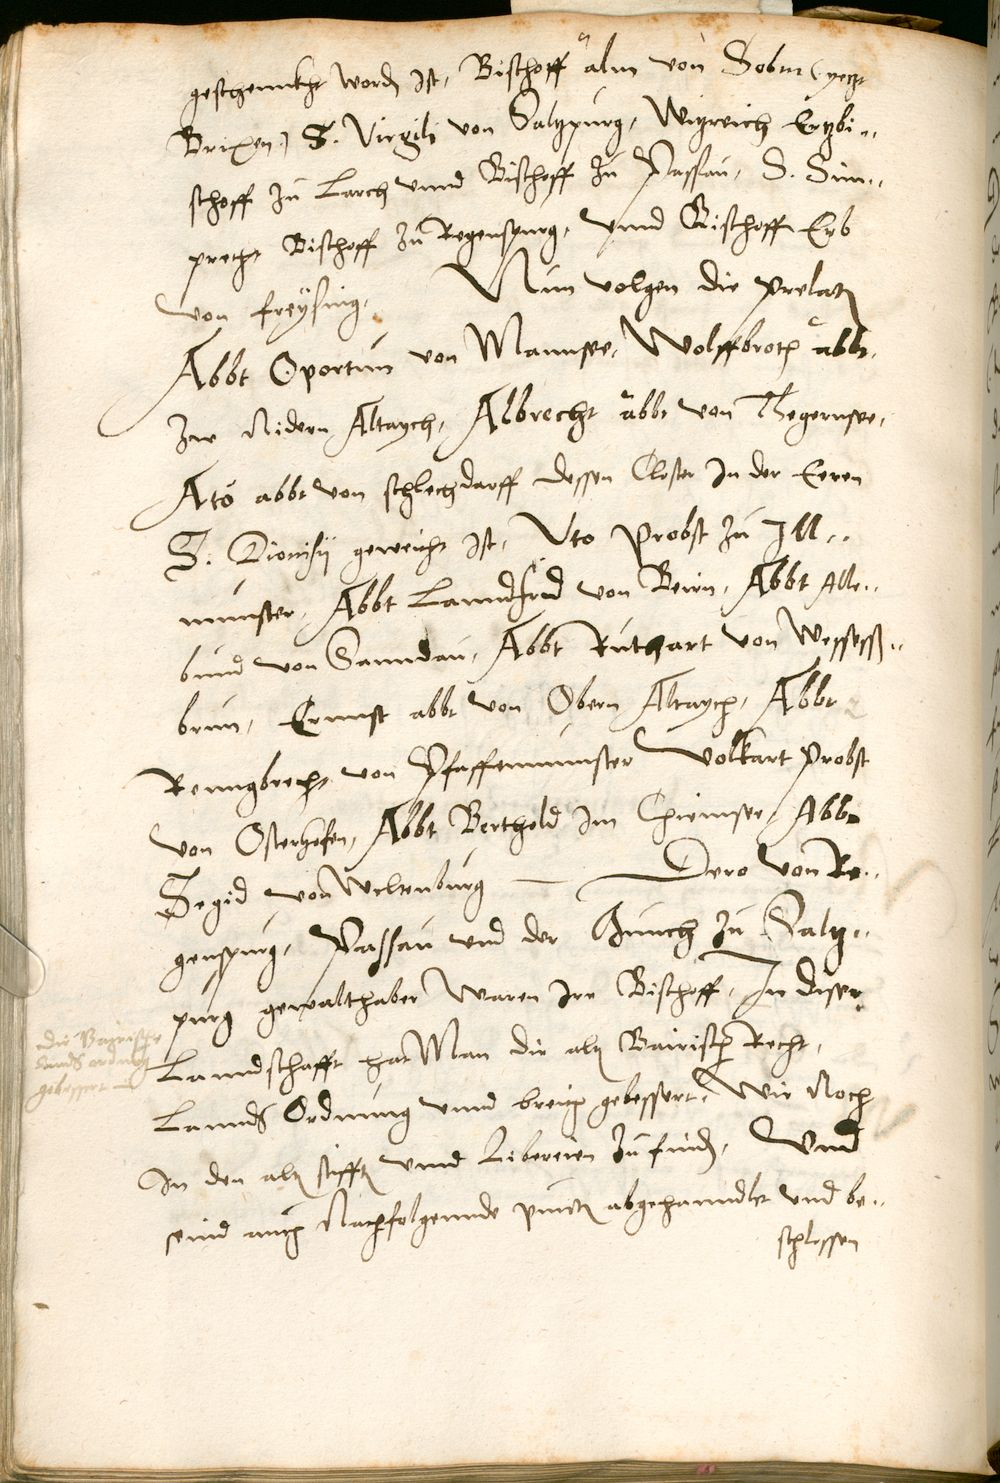 geschennkht worden ist, Bischoff alm von Sobm (yetz
Brixen.) S. Virgili von Saltzpurg, Witzreich Ertzbi-
schoff zu Larch unnd Bischoff zu Passau, S. Sim-
precht Bischoff zu Regenspurg, unnd Bischoff Erb
von freysing. Nun volgen die Prelaten
Abbt Oportun von Mannsee, Wolffbrecht abbt
Zu Nidern Altaych, Albrecht abbt von Thegernsee,
Ato abbt von schlechdarff dessen Closter in der Eeren
S. Dionisij geweicht ist, Uto Probst zu Ill-
munster, Abbt Lanndfrid von Beirn, Abbt Alle-
bund von Sanndau, Abbt Ruthart von Wessess-
brun, Ernnst abbt von Obern Altaych, Abbt
Renngbrecht von Pfaffenmunster Volkart Probst
von Osterhofen, Abbt Berthold im Chiemsee, Abbt
Segid von Weltenburg — Dero von Re-
genspurg, Passau und der Munch zu Saltz-
purg gewalthaber Waren Ire Bischoff, In diser
Lanndschafft hat Man die alten Bairisch Recht,
Lannds Ordnung unnd breuch gebessert, Wie Noch
In den alten stifften unnd Libereien zu finden, Und
seind auch Nachfolgennde puncten abgehanndlet und be-
schlossen
die Bairische
lands ordnung
gebessert